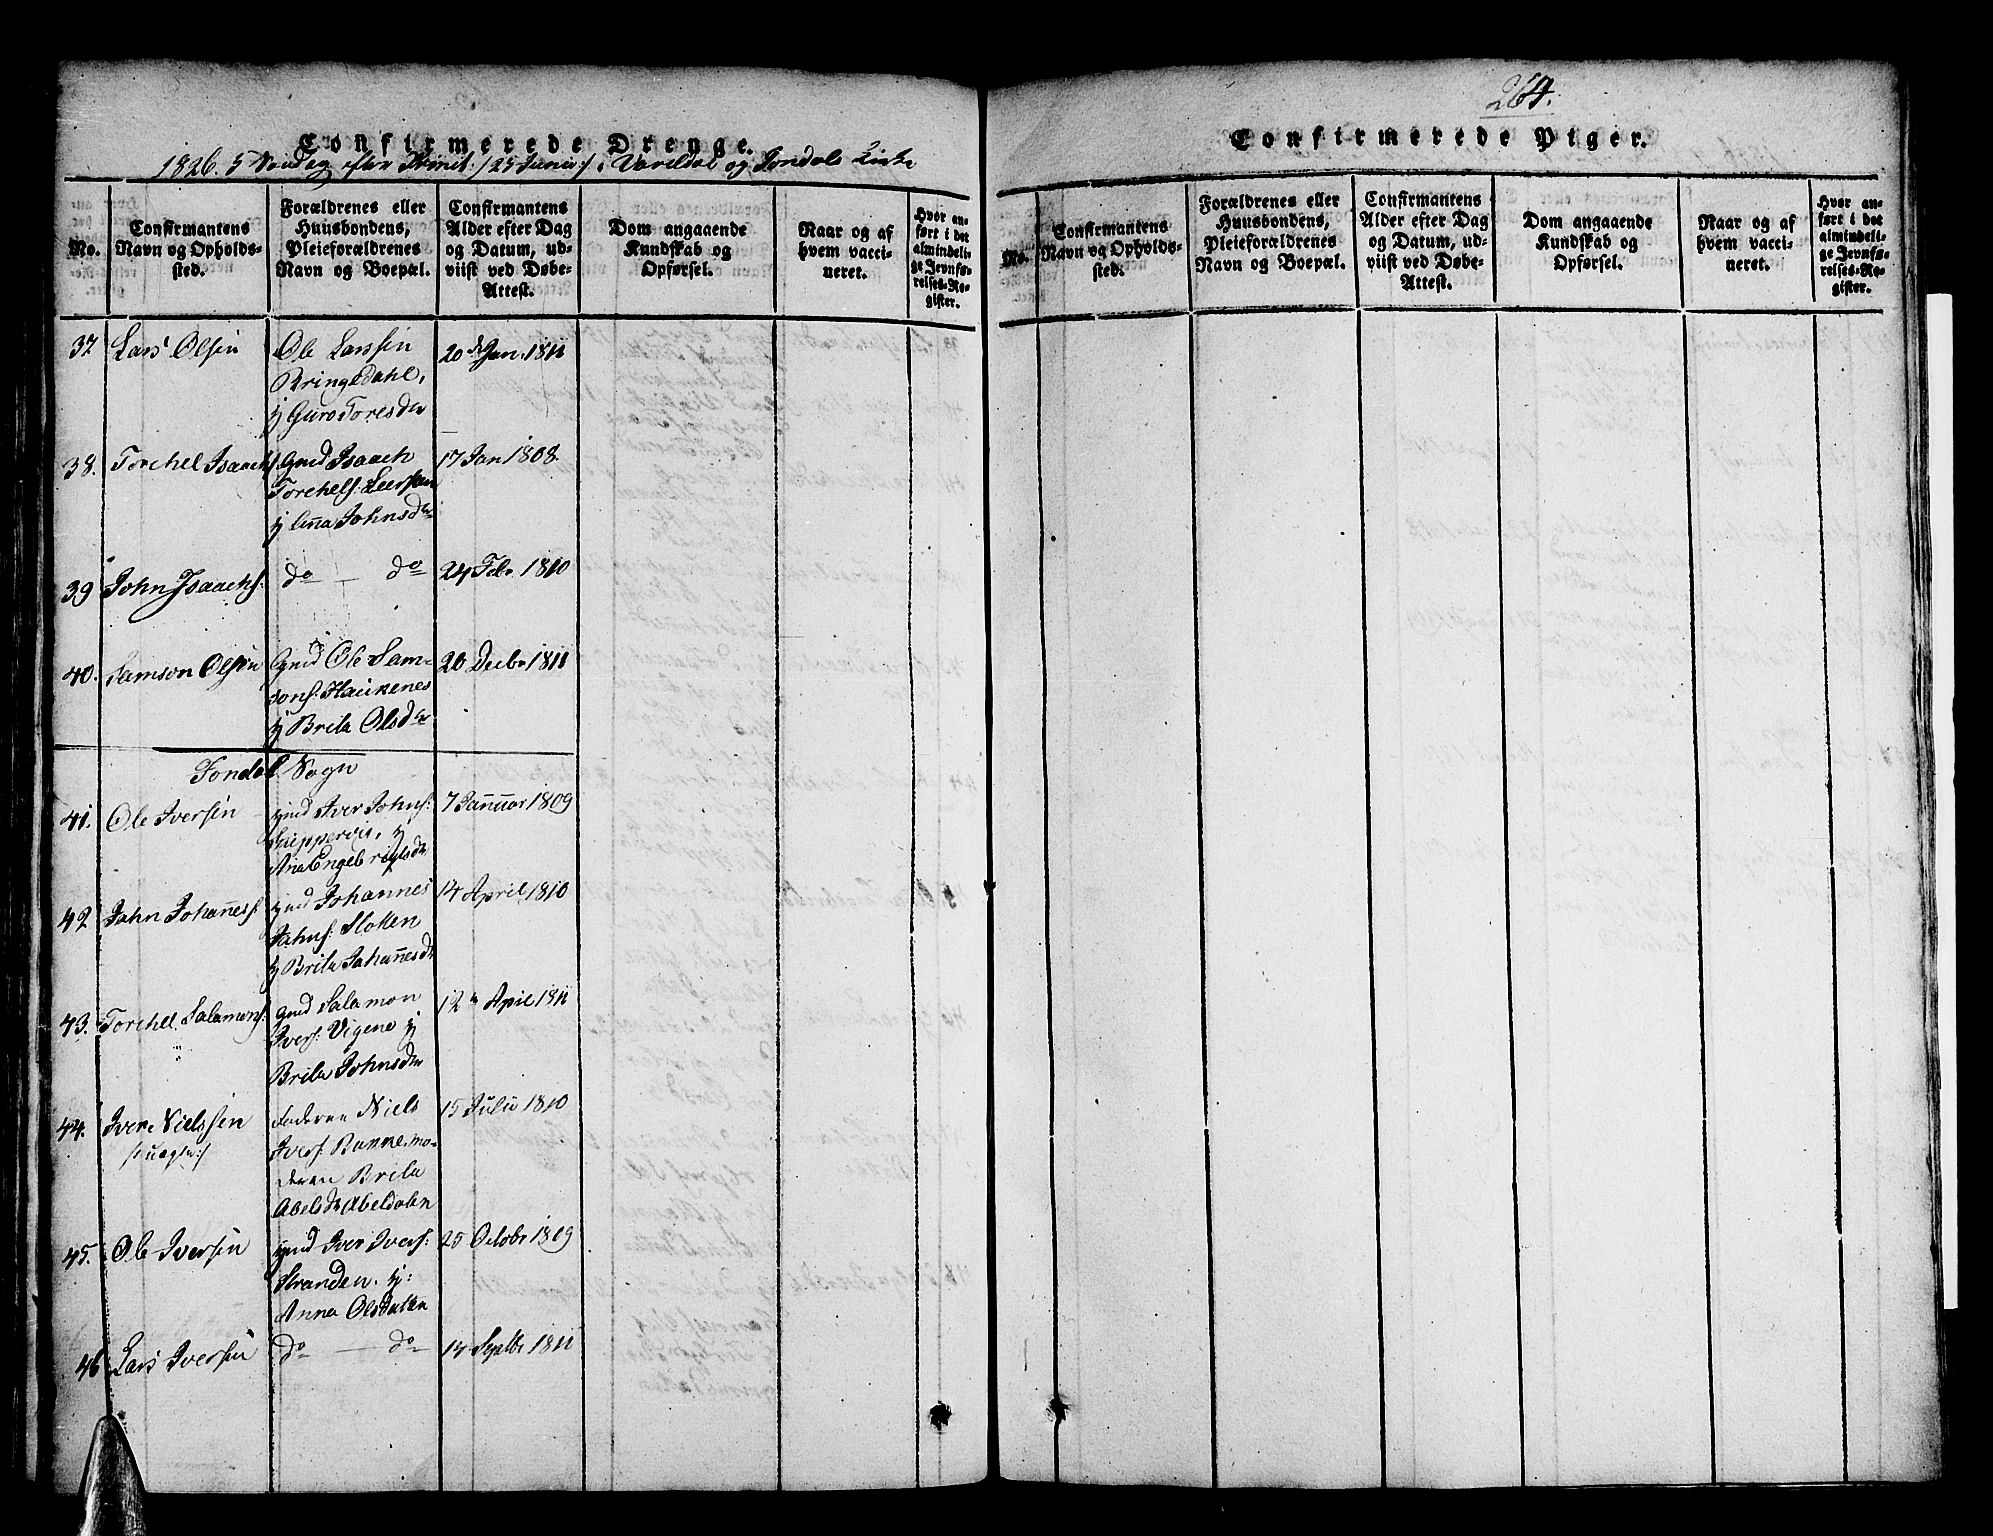 Confirmerede Drenge.
1826. 5 Søndag efter Trinit: /25 Junii/ i Vareldsø og Jondals Kirke
No.
Confirmantens
Navn og Opholds-
sted.
Forældrenes eller
Huusbondens,
Pleieforældrenes
Navn og Boepæl.
Confirmantens
Alder efter Dag
og Datum, ud-
viist ved Døbe-
Attest.
Dom angaaende
Kundskab og
Opførsel.
Naar og af
hvem vacci-
neret.
Hvor an-
ført i det
almindeli-
ge Jevnfø-
relses-Re-
gister.
37 Lars Olsen
Ole Larssen
Bringedahl,
Guro Toresdr
20 Jan. 1811
38. Torchel Isaachs
Gmd Isaach
Torchels:
Johnsdr
17 Jan 1808.
39 John Isaachs:
do — do
24 Febr 1810
40. Samson Olsen
Gmd Ole Sam-
sons: Haukenes
Brita Olsdr
20 Decbr 1811
Jondal Sogn
41. Ole Iversen
gmd Iver Johns:
Ana Engebrigtsdr
7 Januar 1809
42 John Johaness:
gmd Johannes
Johns: Flotten
Brita Johanesdr
14 April 1810
43. Torchel Salamons:
gmd Salamon
Ivers: Vigene
Brita Johnsdr
12 April 1811
44. Iver Nielssen
/:uægte:/
Faderen Niels
Ivers: mo-
deren Brita
Abelsdr Abeldalen
15 Julii 1810
45. Ole Iversen
gmd Iver Ivers:
Stranden.
Anna Olsdatter
25 Octobr 1809
46 Lars Iversen
do — do
14 Septbr 1811
264.
Confirmerede Piger.
No.
Confirmantens
Navn og Opholds-
sted.
Forældrenes eller
Huusbondens,
Pleieforældrenes
Navn og Boepæl.
Confirmantens
Alder efter Dag
og Datum, ud-
viist ved Døbe-
Attest.
Dom angaaende
Kundskab og
Opførsel.
Naar og af
hvem vacci-
neret.
Hvor an-
ført i det
almindeli-
ge Jevnfø-
relses-Re-
gister.